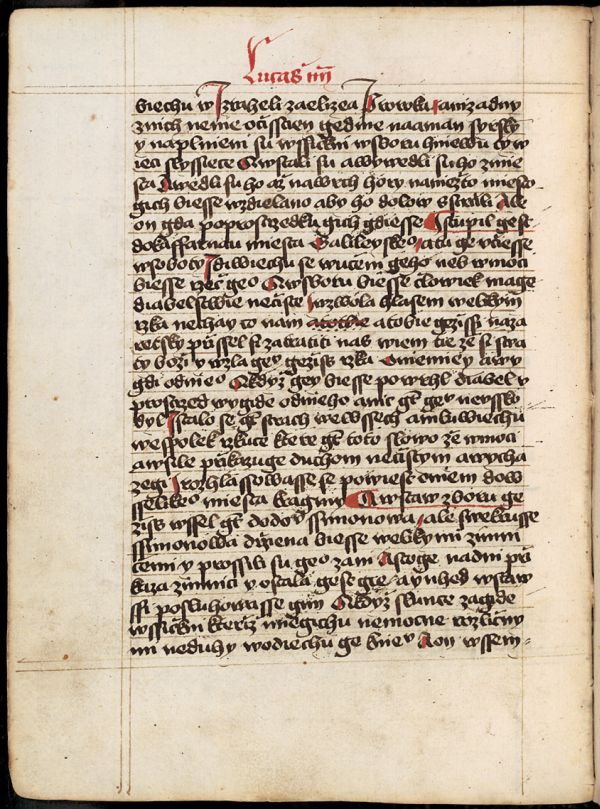 Lucas iiii
biechu w Izraheli za elizea I wdowka / a nizadny
z nich nenie ocissczien gedine naaman syrsky
y naplnieni su wssickni w sboru hniewu ty wieci slyssiece
A wstali su a wywedli su ho z mie
sta A wedli su ho az na wrch hory na niezto miesto
gich biesse wzdielano aby ho dolow sstrcili Ale
on gda po prostrzedku gich gdiesse A stupil gest
do kaffarnau miesta Galileyske⁹ / a tu ge vciesse
w soboty I diwiechu se wuceni geho neb w moci
biesse rzec ge⁹ A w sboru biesse czlowiek mage
diabelstwie neciste / y zwola hlasem welikym
rzka nechay co nam a tobie gezissi naza
retsky prissel si zatratiti nas wiem tie ze si swa
ty bozi y wzla gey geziss rzka Oniemiey a wy
gdi od nie⁹ A kdyz gey biesse powrhl diabel v
prostrzed wygide od nieho a nic gt gey nevsskodyl
I stalo se gt strach we wssech a mluwiechu
wespolek rzkuce ktere gt toto slowo ze w moci
a w sile prikazuge duchom necistym a wycha
zegi I rozhlassowasse se powiest o niem do w
sselike⁹ miesta kraginy A wstaw z boru ge
ziss wssel gt do domu ssimonowa / ale swekrusse
ssimonowa drziena biesse welikymi zimni
cemi y prosili su ge⁹ za ni A stoge nad ni pri
kaza zimnici y ostala gest gie / a y uhed wstaw
ssi posluhowasse gim A kdyz slunce zagide
wssickni kteriz miegichu nemocne rozlicny
mi neduhy wodiechu ge k nie⁹ A on wssem=